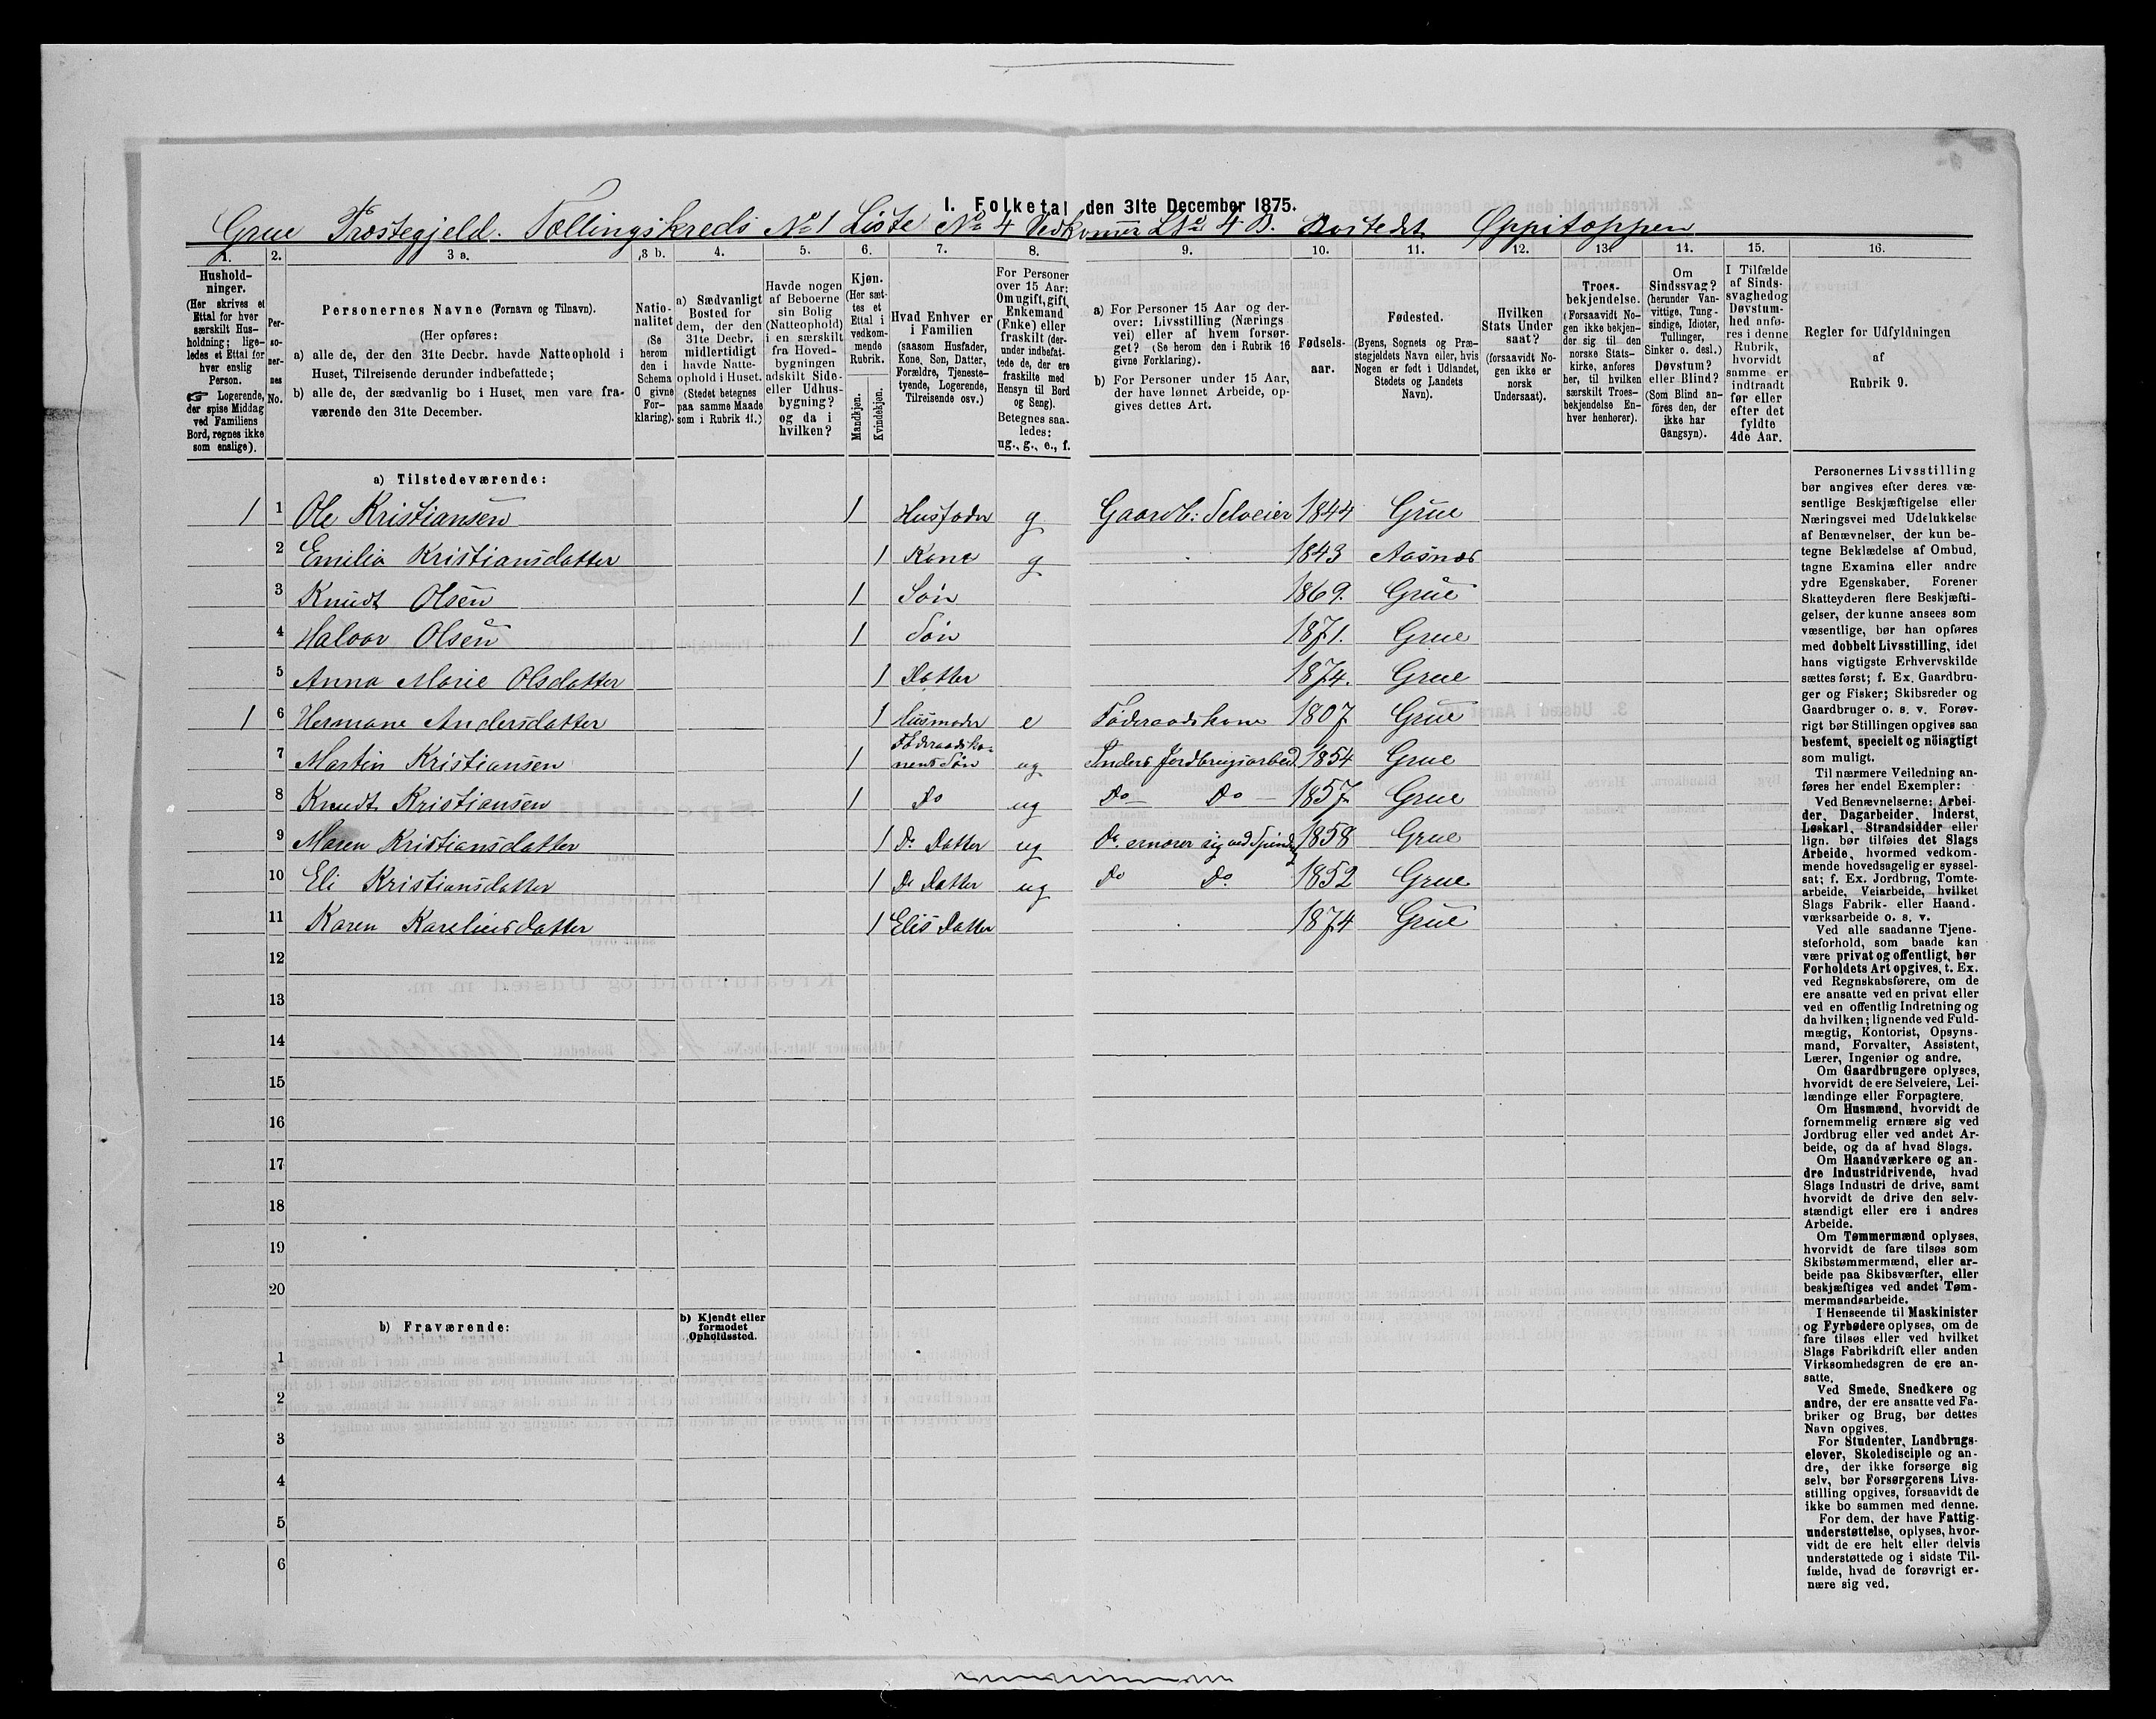 I. Folketal den 31te December 1875.
Grue Præstegjeld. Tællingskreds No 1 Liste No 4 Vedkommer L No 4 B. Bostedt Oppitoppen
1. 2. 3 a. 3 b. 4. 5. 6. 7. 8. 9. 10. 11. 12. 13. 14. 15. 16.
Hushold-
ninger.
(Her skrives et
Ettal for hver
særskilt Hus-
holdning; lige-
ledes et Ettal for
hver enslig
Person.
☞ Logerende,
der spise Middag
ved Familiens
Bord, regnes ikke
som enslige).
Per-
so-
ner-
nes
No.
Personernes Navne (Fornavn og Tilnavn).
(Her opføres:
a) alle de, der den 31te Decbr. havde Natteophold i
Huset, Tilreisende derunder indbefattede;
b) alle de, der sædvanlig bo i Huset, men vare fra-
værende den 31te December.
Natio-
nalitet
(Se
herom
den i
Schema
O givne
For-
klaring).
a) Sædvanligt
Bosted for
dem, der den
31te Decbr.
midlertidigt
havde Natte-
ophold i Huset.
(Stedet betegnes
paa samme Maade
som i Rubrik 11.)
Havde nogen
af Beboerne
sin Bolig
(Natteophold)
i en særskilt
fra Hoved-
bygningen
adskilt Side-
eller Udhus-
bygning?
og da i
hvilken?
Kjøn.
(Her sæt-
tes et
Ettal i
vedkom-
mende
Rubrik.
Mandkjøn.
Kvindekjøn.
Hvad Enhver er
i Familien
(saasom Husfader,
Kone, Søn, Datter,
Forældre, Tjeneste-
tyende, Logerende,
Tilreisende osv.)
For Personer
over 15 Aar:
Om ugift, gift,
Enkemand
(Enke) eller
fraskilt (der-
under indbefat-
tede de, der ere
fraskilte med
Hensyn til Bord
og Seng).
Betegnes saa-
ledes:
ug., g., e., f.
a) For Personer 15 Aar og der-
over: Livsstilling (Nærings
vei) eller af hvem forsør-
get? (Se herom den i Rubrik 16
givne Forklaring).
b) For Personer under 15 Aar,
der have lønnet Arbeide, op-
gives dettes Art.
Fødsels-
aar.
Fødested.
(Byens, Sognets og Præ-
stegjeldets Navn eller, hvis
Nogen er født i Udlandet,
Stedets og Landets
Navn).
Hvilken
Stats Under
saat?
(forsaavidt No-
gen ikke er
norsk
Undersaat).
Troes-
bekjendelse.
(Forsaavidt No-
gen ikke bekjen-
der sig til den
norske Stats-
kirke, anføres
her, til hvilken
særskilt Troes-
bekjendelse En-
hver henhører).
Om
Sindssvag?
(herunder Van-
vittige, Tung-
sindige, Idioter,
Tullinger,
Sinker o. desl.)
Døvstum?
eller Blind?
(Som Blind an-
føres den, der
ikke har
Gangsyn).
I Tilfælde
af Sinds-
svaghed og
Døvstum-
hed anfø-
res i denne
Rubrik,
hvorvidt
samme er
indtraadt
før eller
efter det
fyldte
4de Aar.
Regler for Udfyldningen
af
Rubrik 9.
a) Tilstedeværende:
1 1 Ole Kristiansen 1 Husfader g Gaardb: Selveier 1844 Grue
2 Emilia Kristiansdatter 1 Kone g 1843 Aasnæs
3 Knudt Olsen 1 Søn 1869. Grue
4 Halvor Olsen 1 Søn 1871. Grue
5 Anna Marie Olsdatter 1 Datter 1874. Grue
1 6 Hermane Andersdatter 1 Husmoder e Føderaadskone 1807 Grue
7 Martin Kristiansen 1 Føderaadsko-
nens Søn ug Inders Jordbrugsarbed 1854 Grue
8 Knudt Kristiansen 1 Do ug Do — Do — 1857 Grue
9 Maren Kristiansdatter 1 Do Datter ug Do ernærer sig ved Spinding 1858 Grue
10 Eli Kristiansdatter 1 Do Datter ug Do Do. 1852 Grue
11 Karen Kareliusdatter 1 Elis Datter 1874 Grue
12
13
14
15
16
17
18
19
20
b) Fraværende:
b) Kjendt eller
formodet
Opholdssted.
1
2
3
4
5
6
Personernes Livsstilling
bør angives efter deres væ-
sentlige Beskjæftigelse eller
Næringsvei med Udelukkelse
af Benævnelser, der kun be-
tegne Beklædelse af Ombud,
tagne Examina eller andre
ydre Egenskaber. Forener
Skatteyderen flere Beskjæfti-
gelser, der kunne ansees som
væsentlige, bør han opføres
med dobbelt Livsstilling, idet
hans vigtigste Erhvervskilde
sættes først; f. Ex. Gaardbru-
ger og Fisker; Skibsreder og
Gaardbruger o. s. v. Forøv-
rigt bør Stillingen opgives saa
bestemt, specielt og nöiagtigt
som muligt.
Til nærmere Veiledning an-
føres her endel Exempler:
Ved Benævnelserne: Arbei-
der, Dagarbeider, Inderst,
Løskarl, Strandsidder eller
lign. bør tilføies det Slags
Arbeide, hvormed vedkom-
mende hovedsagelig er syssel-
sat; f. Ex. Jordbrug, Tomte-
arbeide, Veiarbeide, hvilket
Slags Fabrik- eller Haand-
værksarbeide o. s. v.
Ved alle saadanne Tjene-
steforhold, som baade kan
være privat og offentligt, bør
Forholdets Art opgives, t. Ex.
ved Regnskabsførere, om de
ere ansatte ved en privat eller
ved en offentlig Indretning og
da hvilken; lignende ved Fuld-
mægtig, Kontorist, Opsyns-
mand, Forvalter, Assistent,
Lærer, Ingeniør og andre.
Om Gaardbrugere oplyses,
hvorvidt de ere Selveiere, Lei-
lændinge eller Forpagtere.
Om Husmænd, hvorvidt de
fornemmelig ernære sig ved
Jordbrug eller ved andet Ar-
beide, og da af hvad Slags.
Om Haandværkere og an-
dre Industridrivende, hvad
Slags Industri de drive, samt
hvorvidt de drive den selv-
stændigt eller ere i andres
Arbeide.
Om Tømmermænd oplyses,
hvorvidt de fare tilsøs som
Skibstømmermænd, eller ar-
beide paa Skibsværfter, eller
beskjæftiges ved andet Tøm-
mermandsarbeide.
I Henseende til Maskinister
og Fyrbødere oplyses, om de
fare tilsøs eller ved hvilket
Slags Fabrikdrift eller anden
Virksomhedsgren de ere an-
satte.
Ved Smede, Snedkere og
andre, der ere ansatte ved Fa-
briker og Brug, bør dettes
Navn opgives.
For Studenter, Landbrugs-
elever, Skoledisciple og an-
dre, der ikke forsørge sig
selv, bør Forsørgerens Livs-
stilling opgives, forsaavidt de
ikke bo sammen med denne.
For dem, der have Fattig-
understøttelse, oplyses, hvor-
vidt de ere helt eller delvis
understøttede og i sidste Til-
fælde, hvad de forøvrigt er-
nære sig ved.